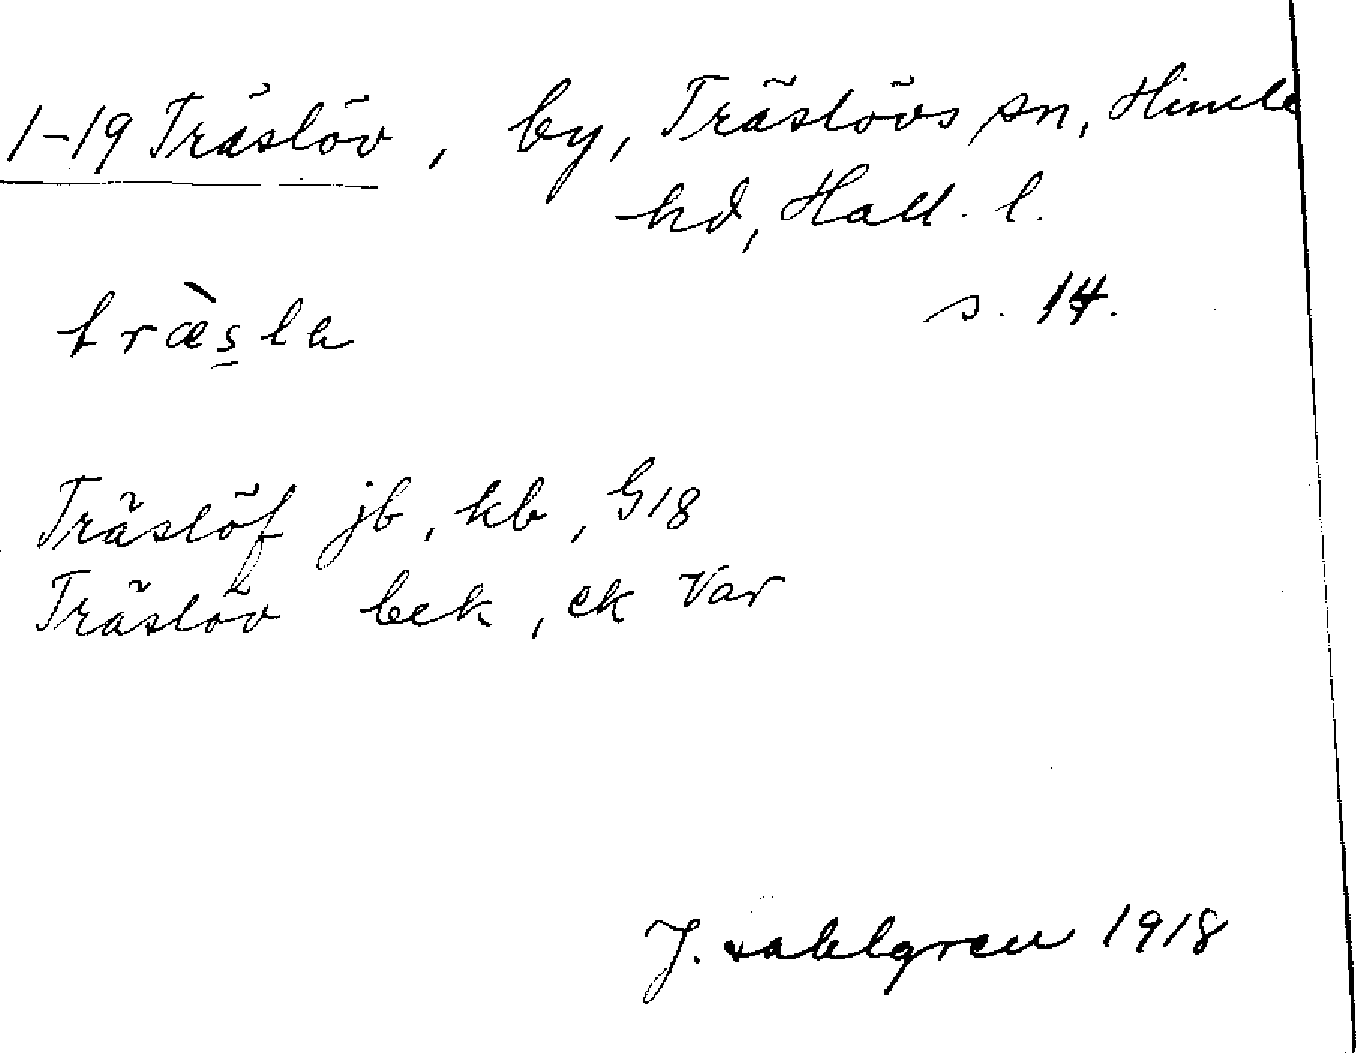 1-19 Träslöv, by, Träslövs sn, Himle
hd, Hall. l.
s. 14.
træ̀s̱la
Träslöf jb, kb, G18
Träslöv bek, ek Var
J. Sahlgren 1918